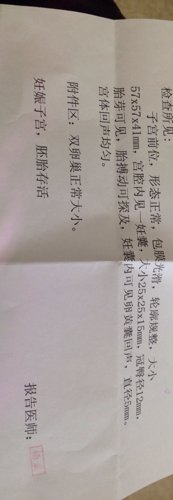 检查所见：
子宫前位，形态正常，包膜光滑，轮廓规整，大小
57x57x41mm，宫腔内见一妊囊，大小25x25x15mm，冠臀径12mm，
胎芽可见，胎搏动可探及，妊囊内可见卵黄囊回声，直径5mm。
宫体回声均匀。
附件区：双卵巢正常大小。
妊娠子宫，胚胎存活
报告医师：